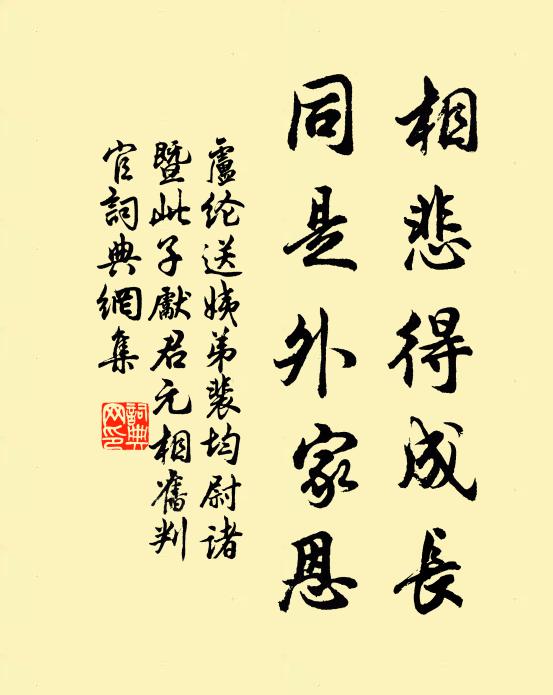 相悲得成長
同是外家恩
盧纶送姨弟裴均尉诸
暨此子獻君元相舊判
官詞典網集
詞典
网印